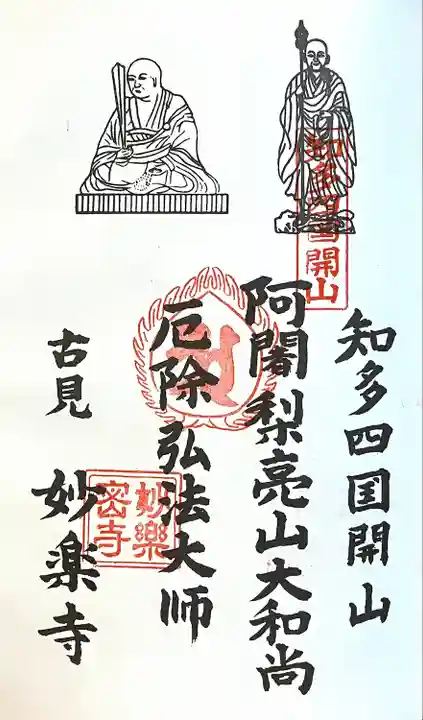 知多四国開山
阿闍梨亮山大和尚
厄除弘法大师
古見 妙楽寺
知多四国開山
妙樂
密寺